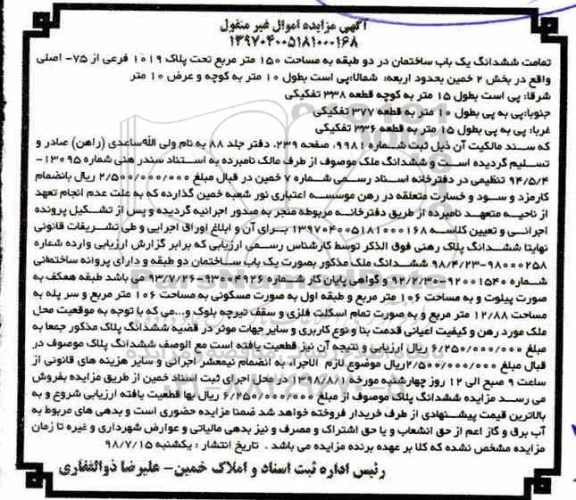 آگهی مزایده اموال غیر منقول
۱۳۹۷۰۴۰۰۵۱۸۱۰۰۰۱۶۸
تمامت ششدانگ یک باب ساختمان در دو طبقه به مساحت ۱۵۰ متر مربع تحت پلاک ۱۰۱۹ فرعی از ۷۵- اصلی
واقع در بخش ۲ خمین بحدود اربعه: شمالا:پی است بطول ۱۰ متر به کوچه و عرض ۱۰ متر
شرقا: پی است بطول ۱۵ متر به کوچه قطعه ۳۳۸ تفکیکی
جنوبا:پی به پی بطول ۱۰ متر به قطعه ۳۷۷ تفکیکی
غربا: پی به پی بطول ۱۵ متر به قطعه ۳۳۶ تفکیکی
که سند مالکیت آن ذیل ثبت شماره ۹۹۸۱، صفحه ۲۳۹، دفتر جلد ۸۸ به نام ولی الله ساعدی (راهن) صادر و
تسلیم گردیده است و ششدانگ ملک موصوف از طرف مالک نامبرده به استناد سند رهنی شماره ۱۳۰۹۵-
۹۴/۵/۴ تنظیمی در دفترخانه اسناد رسمی شماره ۷ خمین در قبال مبلغ ۲/۵۰۰/۰۰۰/۰۰۰ ریال بانضمام
کارمزد و سود و خسارت متعلقه در رهن موسسه اعتباری نور شعبه خمین گذارده که به علت عدم انجام تعهد
از ناحیه متعهد نامبرده از طریق دفترخانه مربوطه منجر به صدور اجرائیه گردیده و پس از تشکیل پرونده
اجرائی و تعیین کلاسه ۱۳۹۷۰۴۰۰۵۱۸۱۰۰۰۱۶۸ برای آن و ابلاغ اوراق اجرایی و طی تشریفات قانونی
نهایتا ششدانگ پلاک رهنی فوق الذکر توسط کارشناس رسمی ارزیابی که برابر گزارش ارزیابی وارده شماره
۹۸۰۰۰۲۵۸-۹۸/۴/۲۳ ششدانگ ملک مذکور بصورت یک باب ساختمان دو طبقه و دارای پروانه ساختمانی
شماره ۹۲۰۰۱۵۴۰-۹۲/۲/۳۰ و گواهی پایان کار شماره ۹۳۰۰۴۹۲۶-۹۳/۷/۲۶ می باشد طبقه همکف به
صورت پیلوت و به مساحت ۱۰۶ متر مربع و طبقه اول به صورت مسکونی به مساحت ۱۰۶ متر مربع و سر پله به
مساحت ۱۲/۸۸ متر مربع و به صورت تمام اسکلت فلزی و سقف تیرچه بلوک و...می که با توجه به موقعیت محل
ملک مورد رهن و کیفیت اعیانی قدمت بنا و نوع کاربری و سایر جهات موثر در قضیه ششدانگ پلاک مذکور جمعا به
مبلغ ۶/۲۵۰/۰۰۰/۰۰۰ ریال ارزیابی و نتیجه آن نیز قطعیت یافته است مع الوصف ششدانگ پلاک موصوف در
قبال مبلغ ۲/۵۰۰/۰۰۰/۰۰۰ ریال موضوع لازم الاجراء به انضمام نیمعشر اجرائی و سایر هزینه های قانونی از
ساعت ۹ صبح الی ۱۲ روز چهارشنبه مورخه ۱۳۹۸/۸/۱ در محل اجرای ثبت اسناد خمین از طریق مزایده بفروش
می رسد مزایده ششدانگ پلاک موصوف از مبلغ ۶/۲۵۰/۰۰۰/۰۰۰ ریال بها قطعیت یافته ارزیابی شروع و به
بالاترین قیمت پیشنهادی از طرف خریدار فروخته خواهد شد ضمنا مزایده حضوری است و بدهی های مربوط به
آب برق و گاز اعم از حق انشعاب و یا حق اشتراک و مصرف و نیز بدهی مالیاتی و عوارض شهرداری و غیره تا زمان
مزایده مشخص نشده که کلا بر عهده برنده مزایده می باشد . تاریخ انتشار : یکشنبه ۹۸/۷/۱۵
رئیس اداره ثبت اسناد و املاک خمین- علیرضا ذوالفقاری